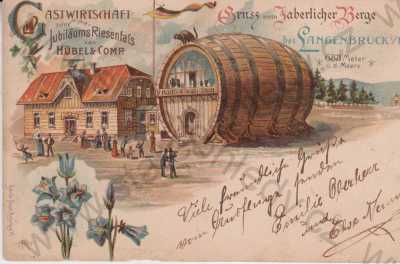 Gastwirtschaft
zum
Jubiläums Riesenfass
von
Hübel & Comp.
Gruss vom Jaberlicher Berge
bei Langenbruck
668 Meter
ü. d. Meere
Viele freundlich Grüße
vom Ausfluge senden
Emilie Oberherr
und